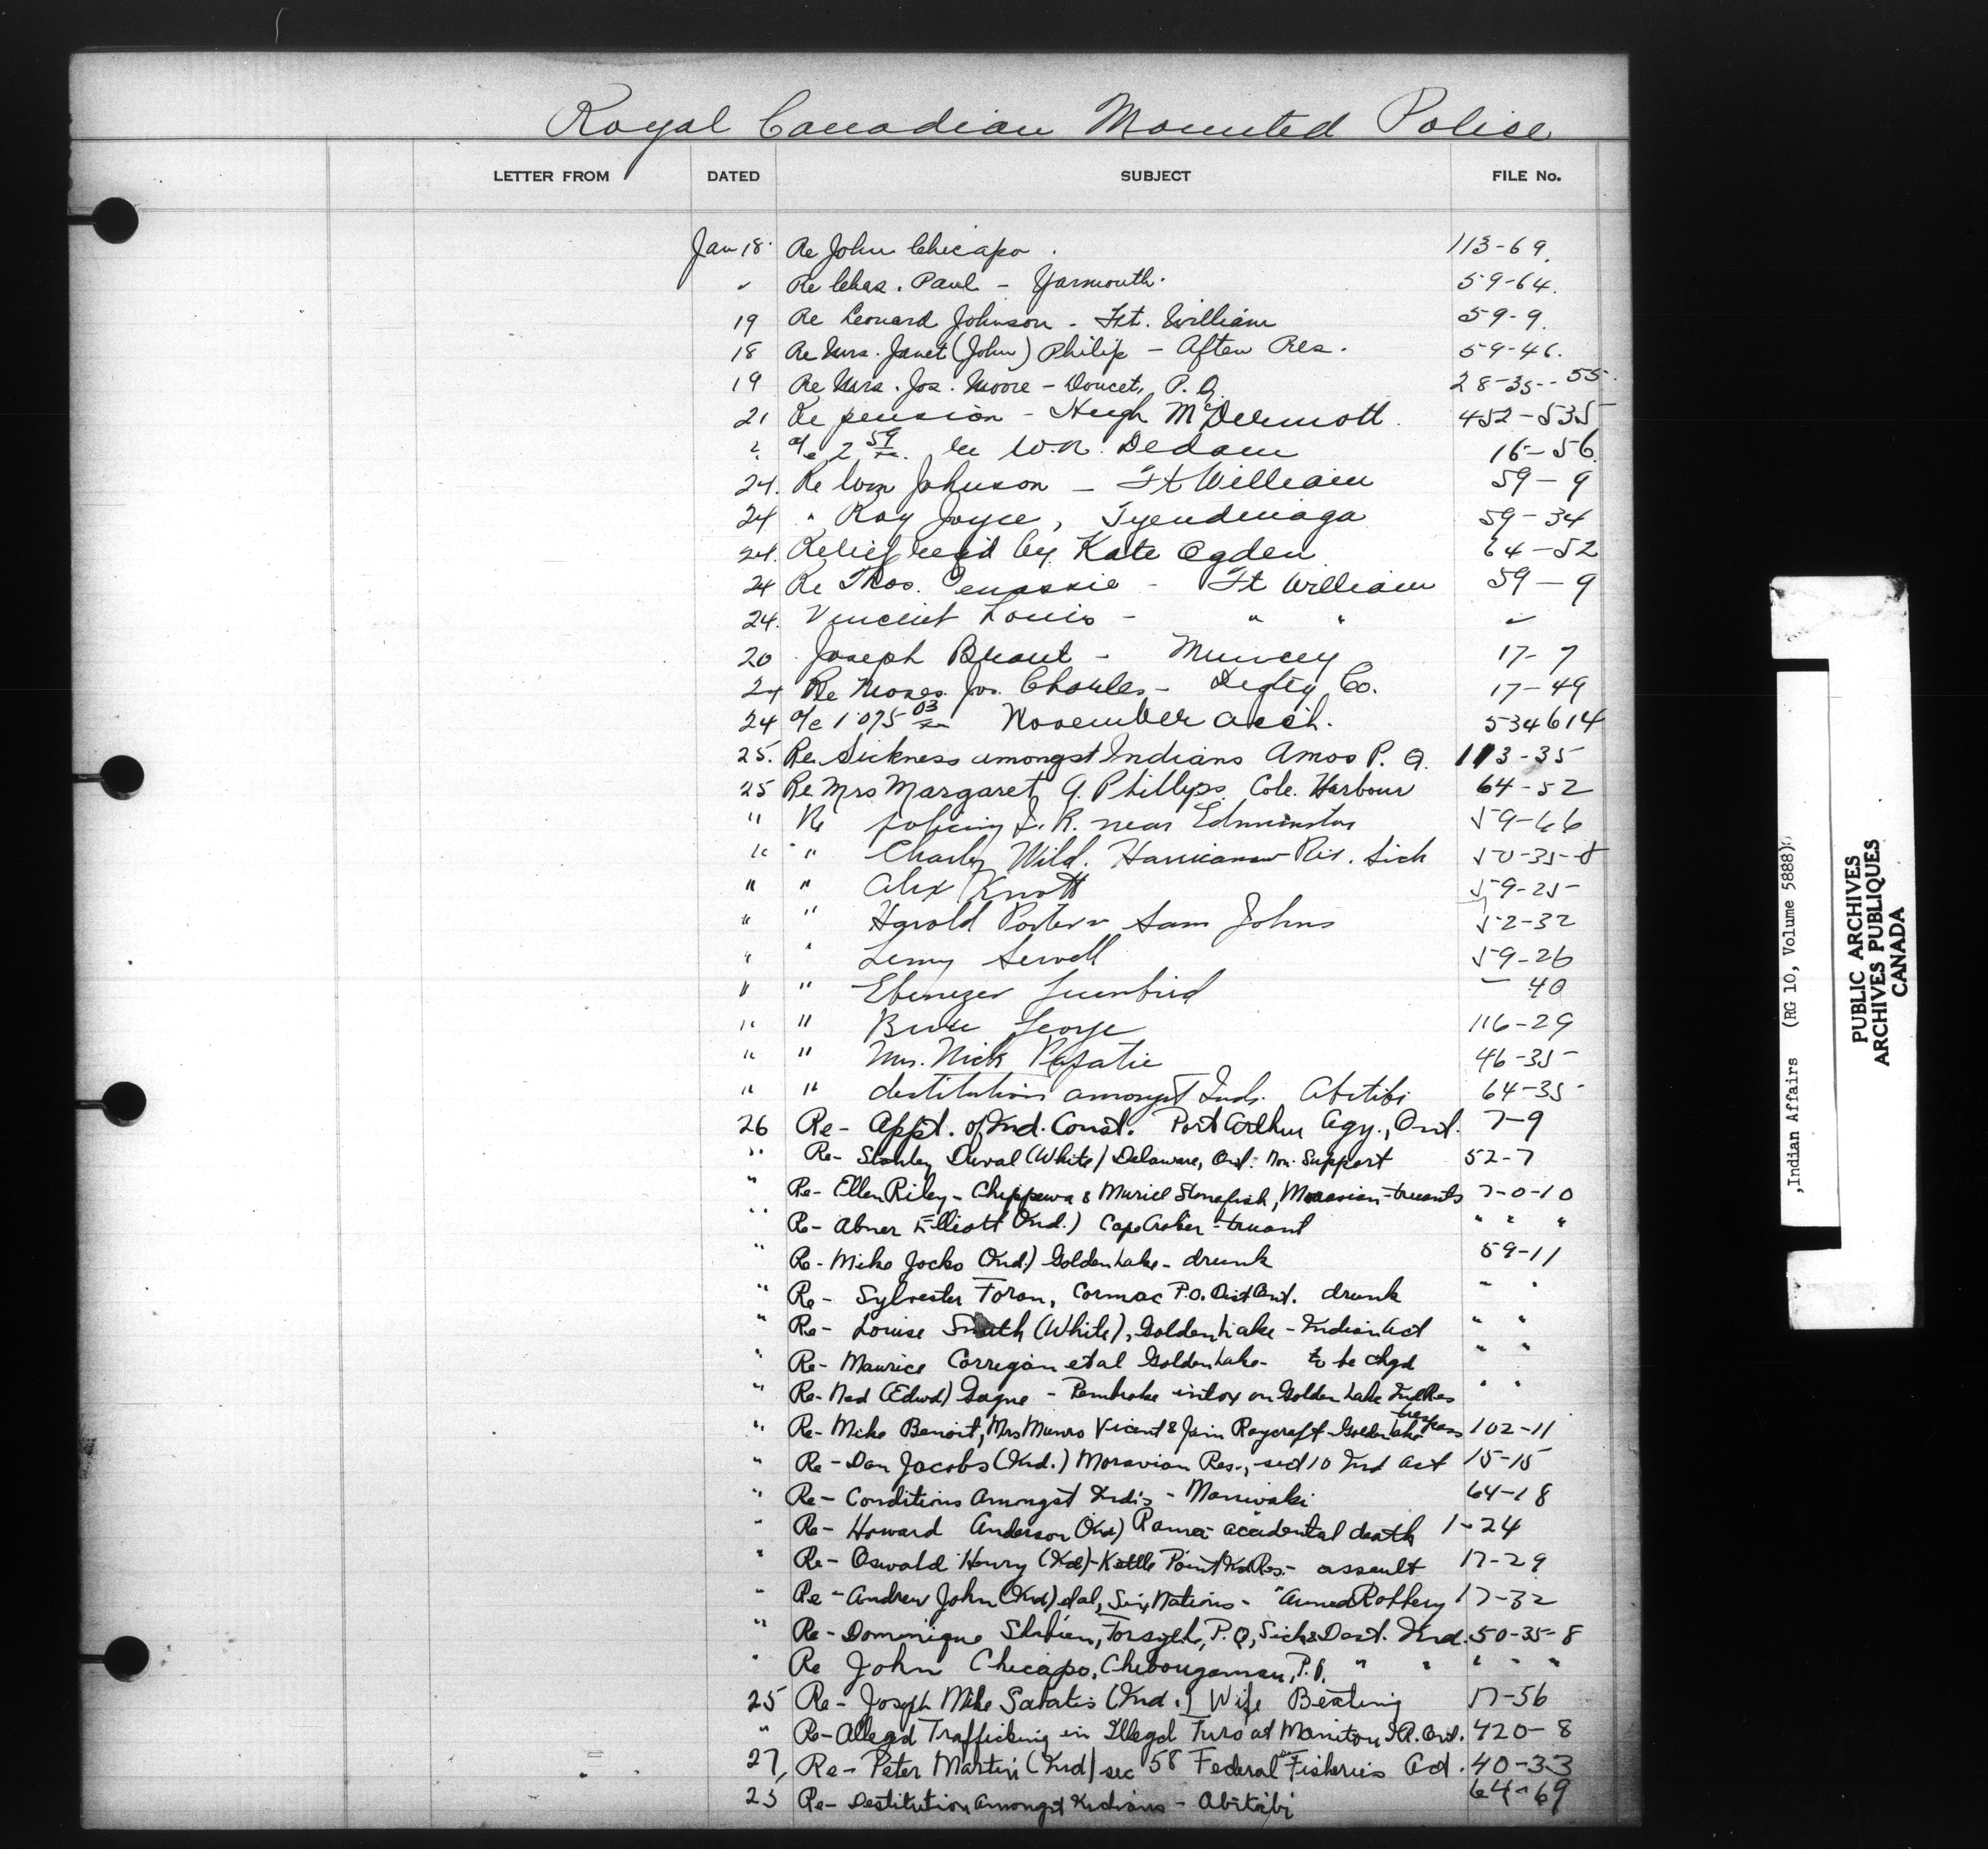 Royal Canadian Mounted Police
LETTER FROM DATED SUBJECT FILE No.
Jan 18 Re John Chicapo 113-69.
" Re Chas. Paul - Yarmouth. 59-64.
19 Re Leonard Johnson - Ft. William 59-9.
18 Re Mrs. Janet (John) Philip - Afton Res. 59-46.
19 Re Mrs. Jos. Moore - Doucet, P.Q. 28-35--55
21 Re pension - Hugh McDermott 452-535
" a/c 2 59 re W.R. Dedam 16-56
24. Re Wm Johnson - Ft William 59-9
24 " Ray Joyce, Tyendinaga 59-34
24. Relief req'd by Kate Ogden 64-52
24 Re Thos. Penassie - Ft William 59-9
24. Vincent Louis - " " "
20 Joseph Brant - Muncey 17-7
24 Re Moses Jos. Charles - Digby Co. 17-49
24 a/c 1075 03 November acct. 534614
25. Re Sickness amongst Indians Amos P.Q. 113-35
25 Re Mrs Margaret A. Phillips Cole Harbour 64-52
" Re policing I.R. near Edmunston 59-66
" " Charley Wild. Harricanaw Riv. Sick 50-35-8
" " Alex Knott 59-25
" " Harold Porter v Sam Johns 52-32
" " Lemy Sewell 59-26
" " Ebenezer - 40
" " George 116-29
" " Mrs. Nick Papatie 46-35
" " destitution amongst Inds. Abitibi 64-35
26 Re- Appt. of Ind. Const. Port Arthur Agy., Ont. 7-9
" Re- Stanley Duval (White) Delaware, Ont. Non-Support 52-7
" Re- Ellen Riley - Chippewa & Muriel Stonefish, Moravian - truants 7-0-10
" Re- Abner Elliott (Ind.) Cape Croker - truant " " "
" Re- Mike Jocko (Ind.) Golden Lake - drunk 59-11
" Re- Sylvester Foran, Cormac P.O. Dist Ont. drunk " "
" Re- Louise Smith (White), Golden Lake - Indian Act " "
" Re- Maurice Corrigan et al Golden Lake - to be chgd " "
" Re- Ned (Edwd) Gagne - Pembroke intox on Golden Lake Ind Res " "
" Re- Mike Benoit, Mrs Munro Vicent & Jim Raycraft - Golden Lake trespass 102-11
" Re- Dan Jacobs (Ind.) Moravian Res., sect 10 Ind Act 15-15
" Re- Conditions Amongst Inds - Maniwaki 64-18
" Re- Howard Anderson (Ind) Rama - accidental death 1-24
" Re- Oswald Henry (Ind) - Kettle Point Ind Res - assault 17-29
" Re- Andrew John (Ind) et al, Six Nations - "Armed Robbery 17-32
" Re- Dominique , Forsythe, P.Q, Sick & Dest. Ind. 50-35-8
" Re John Chicapo, Chibougamau, P.Q. " " " " "
25 Re- Joseph Mike Sabatis (Ind.) Wife Beating 17-56
" Re- Alleged Trafficking in Illegal Furs at Manitou I.R. Ont. 420-8
27, Re- Peter Martin (Ind) sec 58 Federal Fisheries Act. 40-33
25 Re- Destitution Amongst Indians - Abitibi 64-69
,Indian Affairs (RG 10, Volume 5888)
PUBLIC ARCHIVES
ARCHIVES PUBLIQUES
CANADA